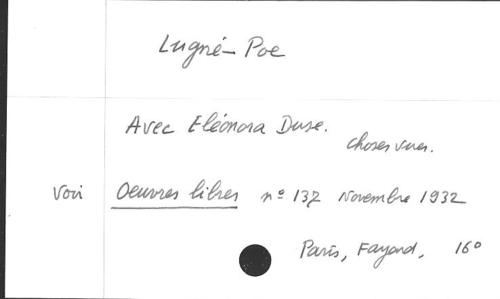 Lugné-Poe
Avec Eléonora Duse.
choses vues.
Voir Oeuvres libres nº 137 Novembre 1932
Paris, Fayard, 16º